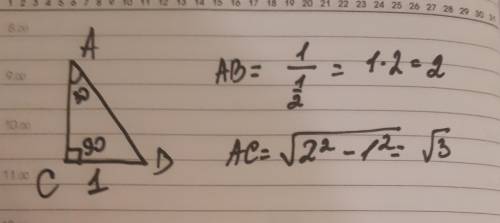 1 2 3 4 5 6 7 8 9 10 11 12 13 14 15 16 17 18 19 20 21 22 23 24 25 26 27 28 29 30 31
8.00
A
AB = 1/(1/2) = 1·2 = 2
9.00
30
10.00
90
AC = √(2² - 1²) = √3
11.00
C 1 B